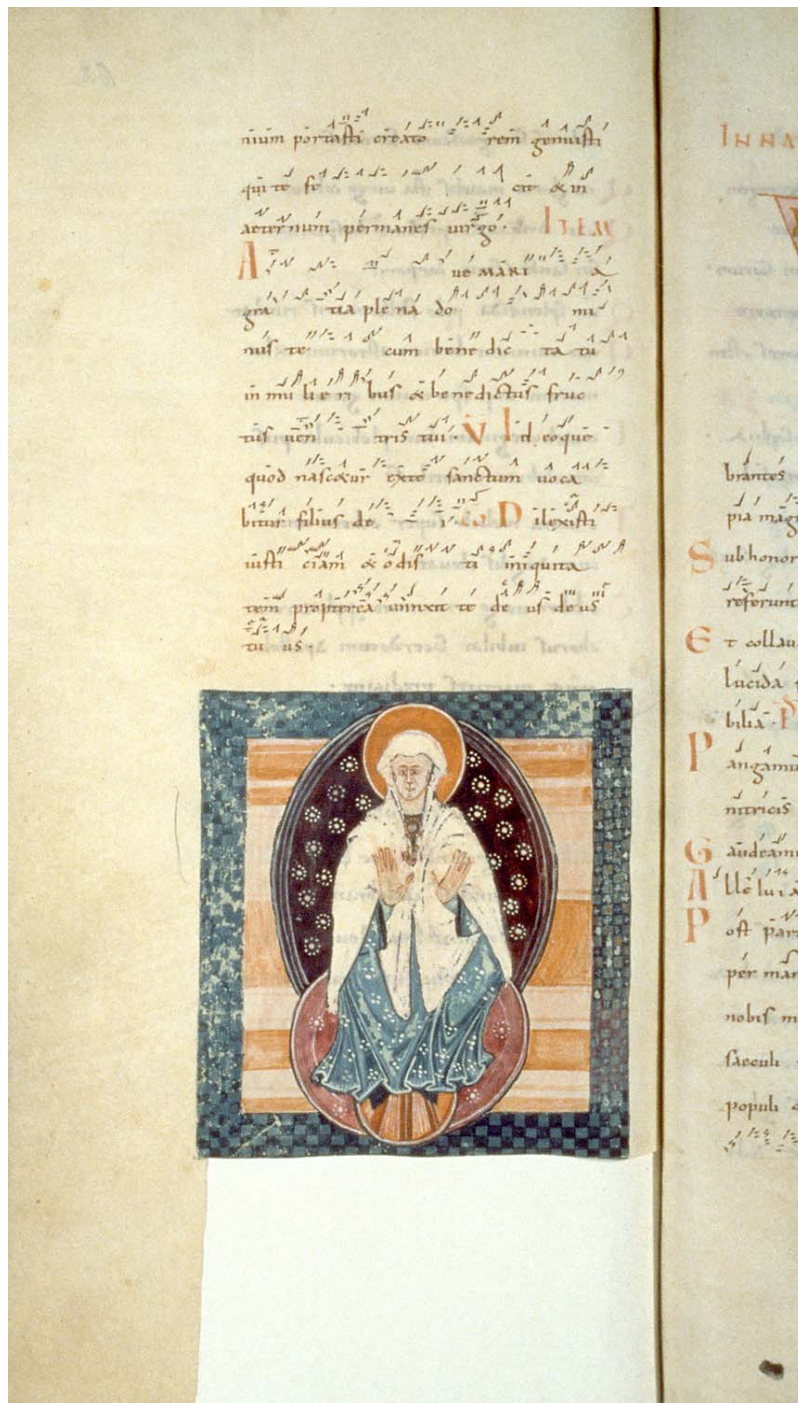 nium portasti creato rem genuisti
qui te fe cit & in
aeternum permanes uirgo. ITEM
A ue MARI A
gra tia plena do mi
nus te cum bene dic ta tu
in mu li e ri bus & benedictus fruc
tus uen tris tui. V Id eoque
quod nascetur exte sanctum uoca
bitur filius de i. co Dilexisti
iusti ciam & odis ti iniquita
tem propterea unxit te de us deus
tu us.
INNA
brantes
pia mag
Sub honor
referunt
Et collau
lucida
bilia. P
Pangamu
nitricis
Gaudeamu
Alleluia
Post par
per mar
nobis m
saeculi
populi